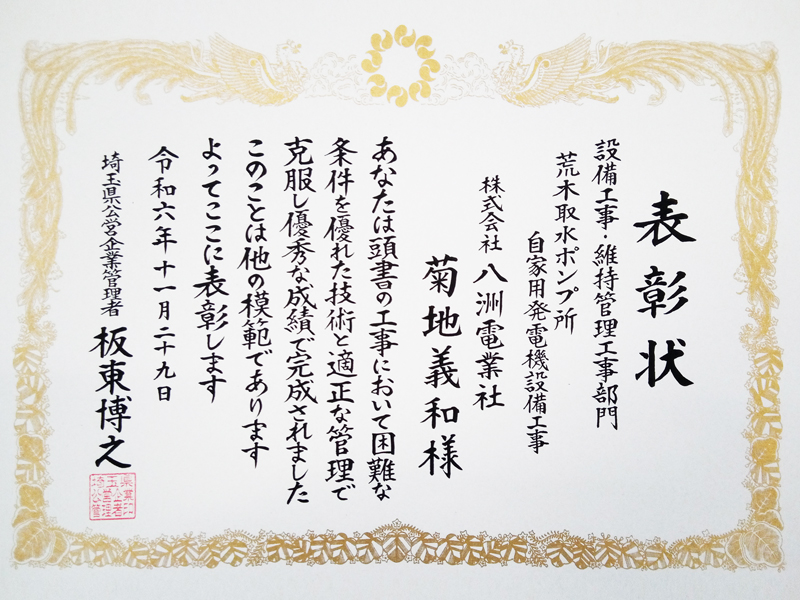 表彰状
設備工事・維持管理工事部門
荒木取水ポンプ所
自家用発電機設備工事
株式会社 八洲電業社
菊地義和様
あなたは頭書の工事において困難な
条件を優れた技術と適正な管理で
克服し優秀な成績で完成されました
このことは他の模範であります
よってここに表彰します
令和六年十一月二十九日
埼玉県公営企業管理者 板東博之